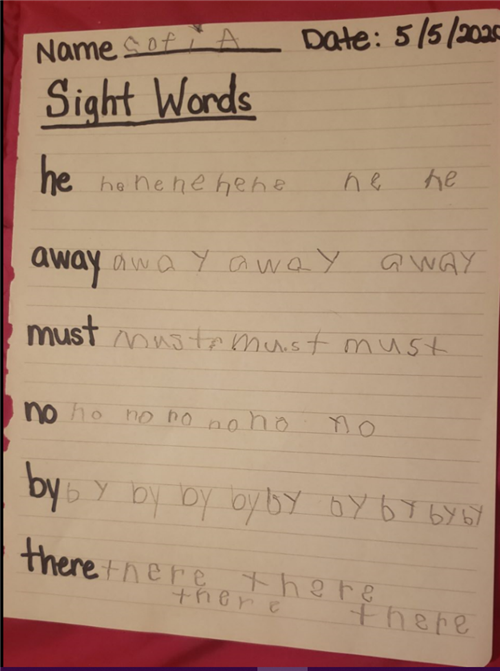 Name Sofi A Date: 5/5/2020
Sight Words
he he he he he he he he
away away away away
must must must must
no no no no no no no
by by by by by by by by by by
there there there
there there